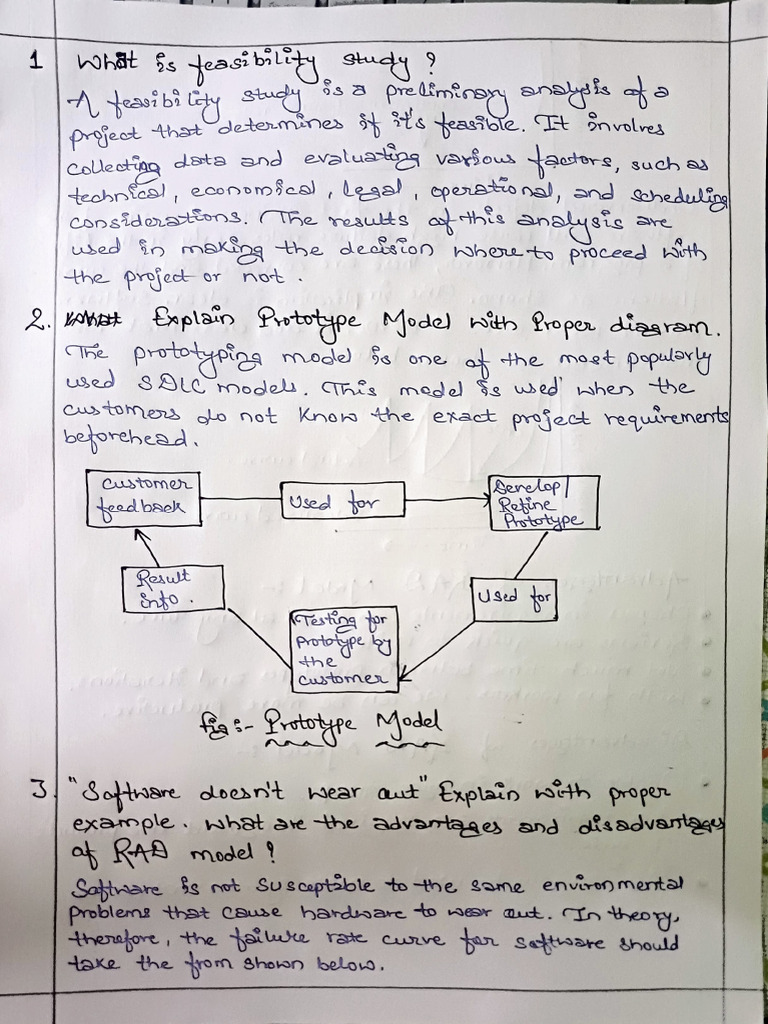 1 What is feasibility study?
A feasibility study is a preliminary analysis of a
project that determines if it's feasible. It involves
collecting data and evaluating various factors, such as
technical, economical, legal, operational, and scheduling
considerations. The results of this analysis are
used in making the decision where to proceed with
the project or not.
2. What Explain Prototype Model with Proper diagram.
The prototyping model is one of the most popularly
used SDLC models. This model is used when the
customers do not know the exact project requirements
beforehead.
Customer
feedback
Used for
Develop/
Refine
Prototype
Result
info.
Used for
Testing for
Prototype by
the
customer
fig:- Prototype Model
3. "Software doesn't wear out" Explain with proper
example. What are the advantages and disadvantages
of RAD model?
Software is not susceptible to the same environmental
Problems that cause hardware to wear out. In theory,
therefore, the failure rate curve for software should
take the from shown below.